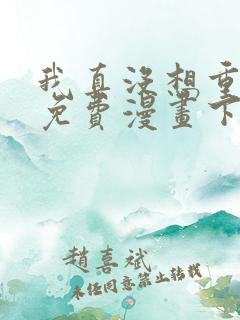 我真没想重
免费漫畫下
趙喜斌
未经同意禁止转载